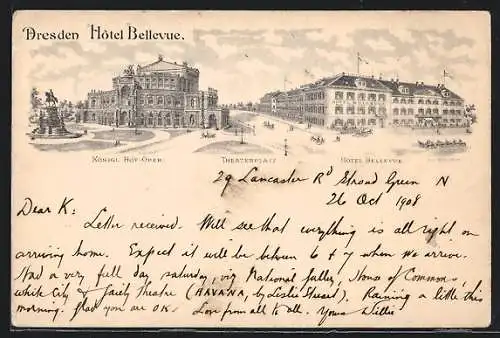 Dresden Hôtel Bellevue.
KÖNIGL. HOF-OPER. THEATERPLATZ HOTEL BELLEVUE
29 Lancaster Rd Stroud Green N
26 Oct 1908
Dear K:
Letter received. Will see that everything is all right on
arriving home. Expect it will be between 6 & 7 when we arrive.
Had a very full day saturday, viz National Gallery, House of Commons,
white City & Gaiety Theatre (HAVANA, by Leslie Stuart). Raining a little this
morning. Glad you are OK. Love from all to all. Yours Willie